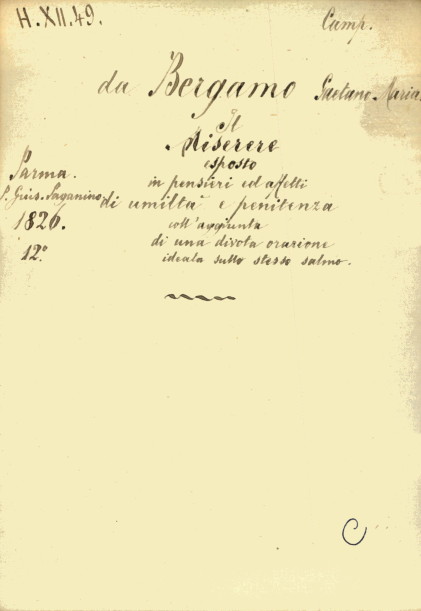 H. XII. 49.
Camp.
da Bergamo Gaetano Maria
Il
Miserere
esposto
in pensieri ed affetti
di umiltà e penitenza
coll'aggiunta
di una divota orazione
ideata sullo stesso salmo.
Parma.
Gius. Paganino
1826.
12.º
C